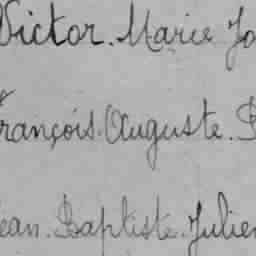 Victor. Marie Jo
François. Auguste. B
ean. Baptiste. Julien